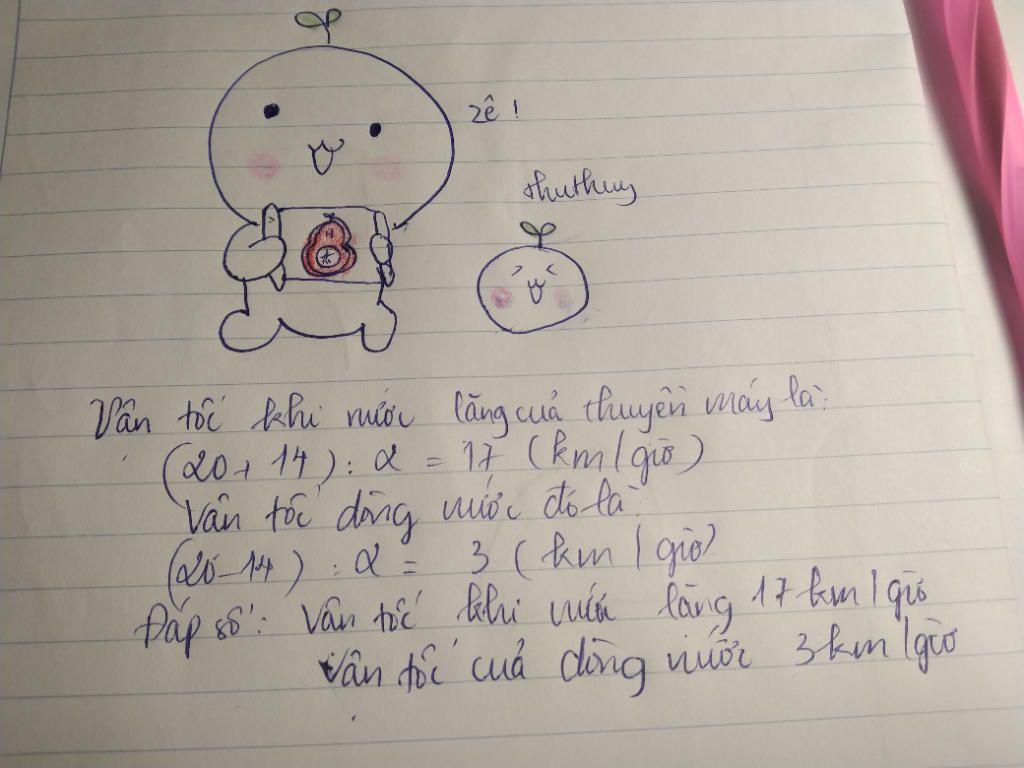 zê !
thuthuy
Vận tốc khi nước lặng của thuyền máy là:
(20 + 14) : 2 = 17 (km/giờ)
Vận tốc dòng nước đó là:
(20 - 14) : 2 = 3 (km/giờ)
Đáp số: Vận tốc khi nước lặng 17 km/giờ
Vận tốc của dòng nước 3 km/giờ